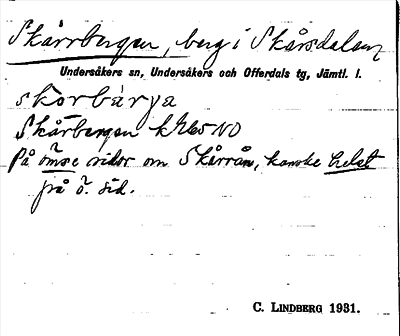 Skårrbergen, berg i Skårsdalen
Undersåkers sn, Undersåkers och Offerdals tg, Jämtl. l.
skorbärya
Skårbergen
På ömse sidor om Skårrån, kanske helst
på ö. sid.
C. LINDBERG 1931.